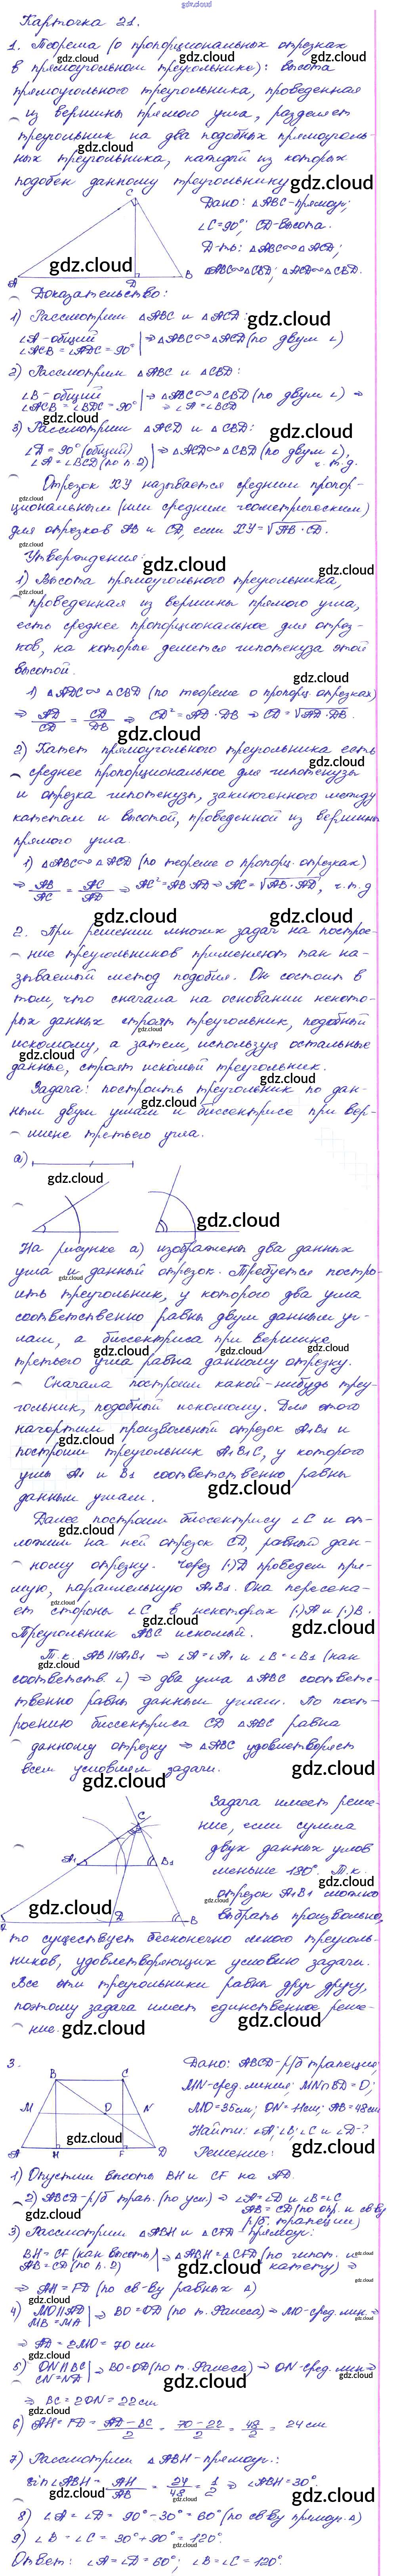 gdz.cloud
Карточка 21.
1. Теорема (о пропорциональных отрезках
в прямоугольном треугольнике): высота
прямоугольного треугольника, проведенная
из вершины прямого угла, разделяет
треугольник на два подобных прямоуголь-
ных треугольника, каждый из которых
подобен данному треугольнику
Дано: △ABC-прямоуг;
∠C=90°; CD-высота.
Д-ть: △ABC∾△ACD;
△ABC∾△CBD; △ACD∾△CBD.
C
A D B
Доказательство:
1) Рассмотрим △ABC и △ACD:
∠A-общий
∠ACB = ∠ADC = 90° | ⇒ △ABC∾△ACD (по двум ∠)
2) Рассмотрим △ABC и △CBD:
∠B-общий | ⇒ △ABC∾△CBD (по двум ∠) ⇒
∠ACB = ∠BDC = 90° ⇒ ∠A = ∠BCD
3) Рассмотрим △ACD и △CBD:
∠D = 90° (общий) | ⇒ △ACD∾△CBD (по двум ∠),
∠A = ∠BCD (по п. 2) ч. т. д.
Отрезок XY называется средним пропор-
циональным (или средним геометрическим)
для отрезков AB и CD, если XY = √AB · CD.
Утверждения:
1) Высота прямоугольного треугольника,
проведенная из вершины прямого угла,
есть среднее пропорциональное для отрез-
ков, на которые делится гипотенуза этой
высотой.
1) △ADC∾△CBD (по теореме о пропорц. отрезках)
⇒ AD/CD = CD/DB ⇒ CD² = AD · DB ⇒ CD = √AD · DB.
2) Катет прямоугольного треугольника есть
среднее пропорциональное для гипотенузы
и отрезка гипотенузы, заключенного между
катетом и высотой, проведенной из вершины
прямого угла.
1) △ABC∾△ACD (по теореме о пропорц. отрезках)
⇒ AB/AC = AC/AD ⇒ AC² = AB · AD ⇒ AC = √AB · AD, ч. т. д
2. При решении многих задач на построе-
ние треугольников применяют так на-
зываемый метод подобия. Он состоит в
том, что сначала на основании некото-
рых данных строят треугольник, подобный
искомому, а затем, используя остальные
данные, строят искомый треугольник.
Задача: построить треугольник по дан-
ным двум углам и биссектрисе при вер-
шине третьего угла.
а)
На рисунке а) изображены два данных
угла и данный отрезок. Требуется постро-
ить треугольник, у которого два угла
соответственно равны двум данным уг-
лам, а биссектриса при вершине
третьего угла равна данному отрезку.
Сначала построим какой-нибудь треу-
гольник, подобный искомому. Для этого
начертим произвольный отрезок A1B1 и
построим треугольник A1B1C, у которого
углы A1 и B1 соответственно равны
данным углам.
Далее построим биссектрису ∠C и от-
ложим на ней отрезок CD, равный дан-
ному отрезку. Через (·)D проведем пря-
мую, параллельную A1B1. Она пересека-
ет стороны ∠C в некоторых (·)A и (·)B.
Треугольник ABC искомый.
Т.к. AB∥A1B1 ⇒ ∠A = ∠A1 и ∠B = ∠B1 (как
соответств. ∠) ⇒ два угла △ABC соответс-
твенно равны данным углам. По пост-
роению биссектриса CD △ABC равна
данному отрезку ⇒ △ABC удовлетворяет
всем условиям задачи.
C
A1 B1
A D B
Задача имеет реше-
ние, если сумма
двух данных углов
меньше 180°. Т.к.
отрезок A1B1 можно
выбрать произвольно,
то существует бесконечно много треуголь-
ников, удовлетворяющих условию задачи.
Все эти треугольники равны друг другу,
поэтому задача имеет единственное реше-
ние.
3.
B C
M O N
A H F D
Дано: ABCD-р/б трапеция;
MN-сред. линия; MN∩BD = O;
MO = 35см; ON = 11см; AB = 48см
Найти: ∠A; ∠B; ∠C и ∠D-?
Решение:
1) Опустим высоты BH и CF на AD.
2) ABCD-р/б трап. (по усл.) ⇒ ∠A = ∠D и ∠B = ∠C
AB = CD (по опр. и св-ву
р/б. трапеции)
3) Рассмотрим △ABH и △CFD-прямоуг.:
BH = CF (как высоты) | ⇒ △ABH = △CFD (по гипот. и
AB = CD (по п. 2) катету) ⇒
⇒ AH = FD (по св-ву равных △)
4) MO∥AD | ⇒ BO = OD (по т. Фалеса) ⇒ MO-сред. лин. ⇒
MB = MA
⇒ AD = 2MO = 70 см
5) ON∥BC | ⇒ BO = OD (по т. Фалеса) ⇒ ON-сред. лин ⇒
CN = ND
⇒ BC = 2ON = 22 см
6) AH = FD = AD - BC/2 = 70 - 22/2 = 48/2 = 24 см
7) Рассмотрим △ABH-прямоуг.:
sin∠ABH = AH/AB = 24/48 = 1/2 ⇒ ∠ABH = 30°.
8) ∠A = ∠D = 90° - 30° = 60° (по св-ву прямоуг. △)
9) ∠B = ∠C = 30° + 90° = 120°.
Ответ: ∠A = ∠D = 60°; ∠B = ∠C = 120°